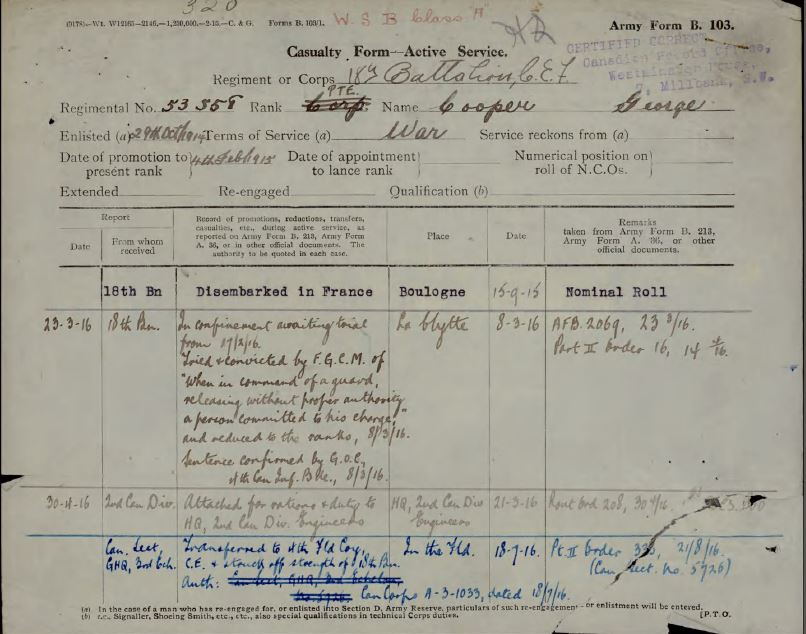 320
(9178)—Wt. W12165—2146.—1,250,000.—2-15.—C. & G. Forms B. 103/1. W S B Class "A"
Army Form B. 103.
CERTIFIED CORRECT
Canadian Record Office,
Westminster House,
7, Millbank, S.W.
Casualty Form—Active Service.
Regiment or Corps 18th Battalion, C.E.F
PTE.
Regimental No. 53558 Rank Corp. Name Cooper George
Enlisted (a) 29th Oct/1914 Terms of Service (a) War Service reckons from (a)
Date of promotion to present rank 4th Feb/1915 Date of appointment to lance rank Numerical position on roll of N.C.Os.
Extended Re-engaged Qualification (b)
Report
Date From whom received
Record of promotions, reductions, transfers, casualties, etc., during active service, as reported on Army Form B. 213, Army Form A. 36, or in other official documents. The authority to be quoted in each case.
Place
Date
Remarks taken from Army Form B. 213, Army Form A. 36, or other official documents.
18th Bn Disembarked in France Boulogne 15-9-15 Nominal Roll
23-3-16 18th Bn. In confinement awaiting trial La Clytte 8-3-16 AFB. 2069, 23 3/16.
from 17/2/16. Part II order 16, 14 4/16.
Tried & convicted by F.G.C.M. of
"When in command of a guard,
releasing without proper authority
a person committed to his charge,"
and reduced to the ranks, 8/3/16.
Sentence confirmed by G.O.C,
4th Can Inf. Bde., 8/3/16.
30-4-16 2nd Can Div. Attached for rations & duty to HQ, 2nd Can Div 21-3-16 Rout Ord 208, 30 4/16.
HQ, 2nd Can Div. Engineers Engineers
Can. Sect, Transferred to 4th Fld Coy, In the Fld. 18-7-16. Pt. II order 21/8/16.
GHQ, 3rd Ech. C.E. & struck off strength of 18th Bn. (Can Sect. No. 5726)
Auth: Can Sect, GHQ, 3rd Echelon,
No. 5726. Can Corps A-3-1033, dated 18/7/16.
(a) In the case of a man who has re-engaged for, or enlisted into Section D, Army Reserve, particulars of such re-engagement or enlistment will be entered.
(b) e.g., Signaller, Shoeing Smith, etc., etc., also special qualifications in technical Corps duties. [P.T.O.